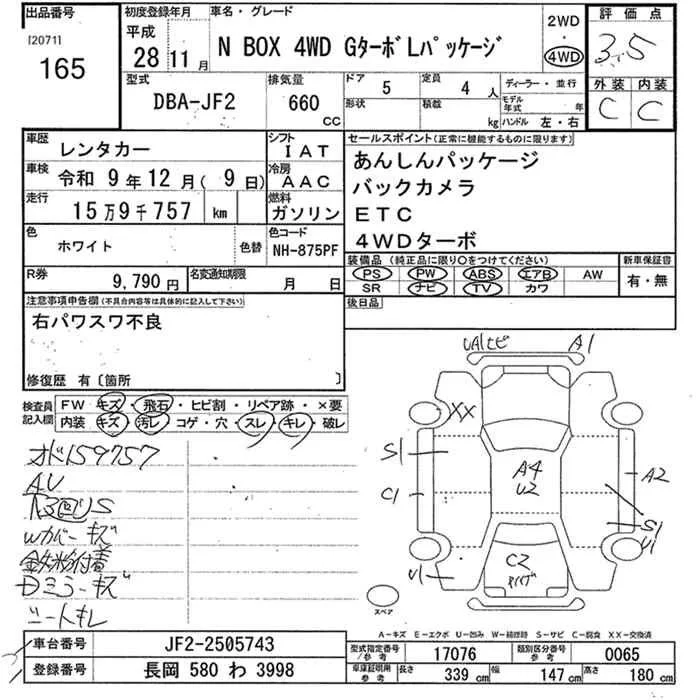 出品番号
[2071]
165
初度登録年月
平成
28 11月
車名・グレード
N BOX 4WD GターボLパッケージ
2WD
・
4WD
評価点
3.5
外装 内装
C C
型式
DBA-JF2
排気量
660
CC
ドア 5
形状
定員 4 人
積載 kg
ディーラー・並行
モデル年式 年
ハンドル 左・右
車歴 レンタカー
シフト IAT
車検 令和 9年12月( 9日)
冷房 AAC
走行 15万9千757 km
燃料 ガソリン
色 ホワイト 色替
色コード NH-875PF
R券 9,790 円
名変通知期限 月 日
セールスポイント(正常に機能するものに限ります)
あんしんパッケージ
バックカメラ
ETC
4WDターボ
装備品 (純正品に限り○をつけてください)
新車保証書
PS PW ABS エアB AW
SR ナビ TV カワ
有・無
後日品
注意事項申告欄(不具合内容等は具体的に記入して下さい)
右パワスワ不良
修復歴 有〔箇所 〕
検査員記入欄
FW キズ・飛石・ヒビ割・リペア跡・×要
内装 キズ・汚レ・コゲ・穴・スレ・キレ・破レ
オドル159757
AV
Wカバーキズ
鉄粉付着
Dミラーキズ
シートキレ
UA1ヒビ A1
XX
S1
C1
A4
U2
A2
S1
U1
U1
C2
スペア
A-キズ E-エクボ U-凹み W-補修跡 S-サビ C-腐食 XX-交換済
車台番号 JF2-2505743
登録番号 長岡 580 わ 3998
型式指定番号参考 17076
類別区分番号参考 0065
車庫証明用参考 長さ 339 cm 幅 147 cm 高さ 180 cm